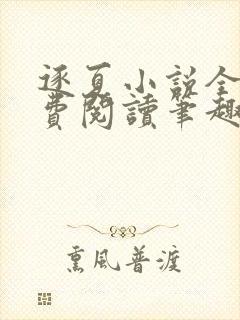 逐夏小説全
費閱讀筆趣
熏風普渡